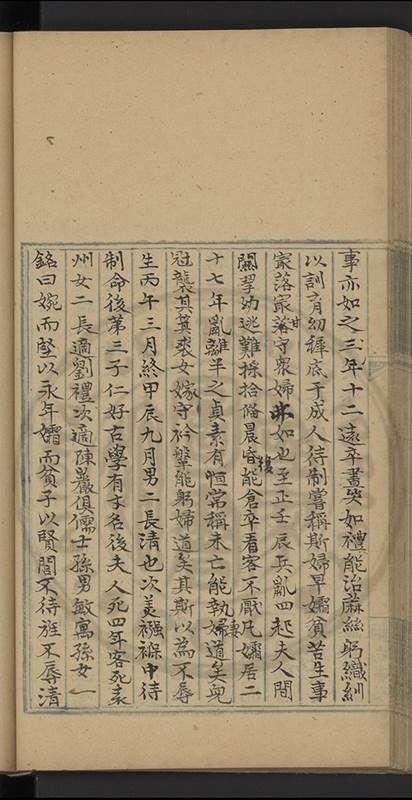 事亦如之三年十二遠卒晝哭如禮能治麻絲躬織紃
以訓育幼穉底于成人待制嘗稱斯婦早孀貧苦生事
家落家落甘守衆婦非如也至正壬辰兵亂四起夫人間
關挈幼逃難採拾隆晨昏後能倉卒看客不厭凡孀居二
十七年亂離半之貞素有恒常稱未亡能執婦道矣兒妻
冠襲其箕裘女嫁守衿鞶能躬婦道矣其斯以為不辱
生丙午三月終甲辰九月男二長清也次美襁褓中待
制命後第三子仁好古學有文名後夫人死四年客死袁
州女二長適劉禮次適陳巖俱儒士孫男敏寓孫女一
銘曰婉而堅以永年孀而貧子以賢閭不待旌不辱清